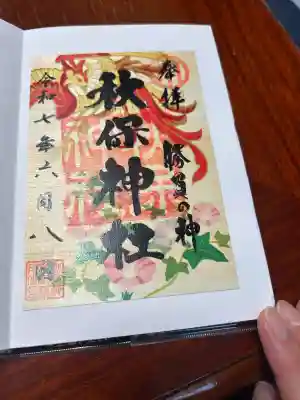 奉拝
勝負の神
秋保神社
令和七年六月八